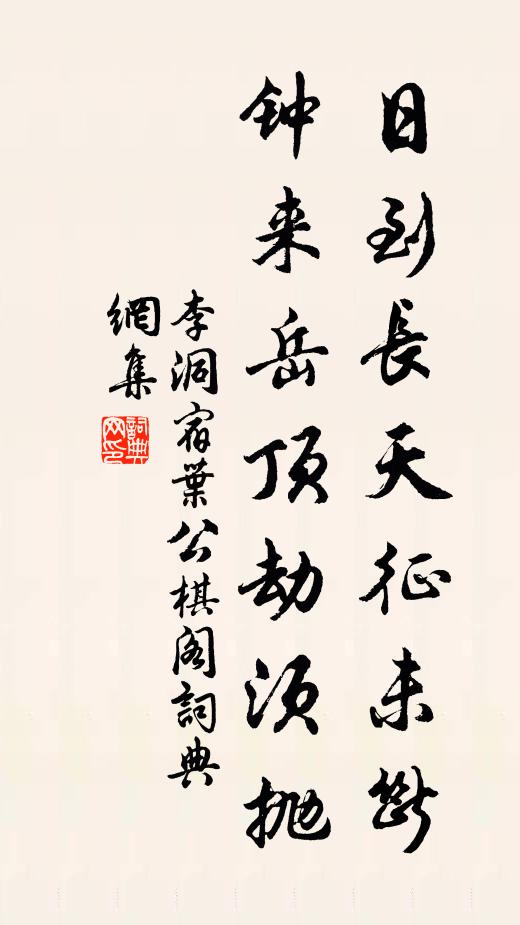 日到長天征未斷
钟来岳顶劫须抛
李洞宿葉公棋阁詞典
網集
詞典
网印